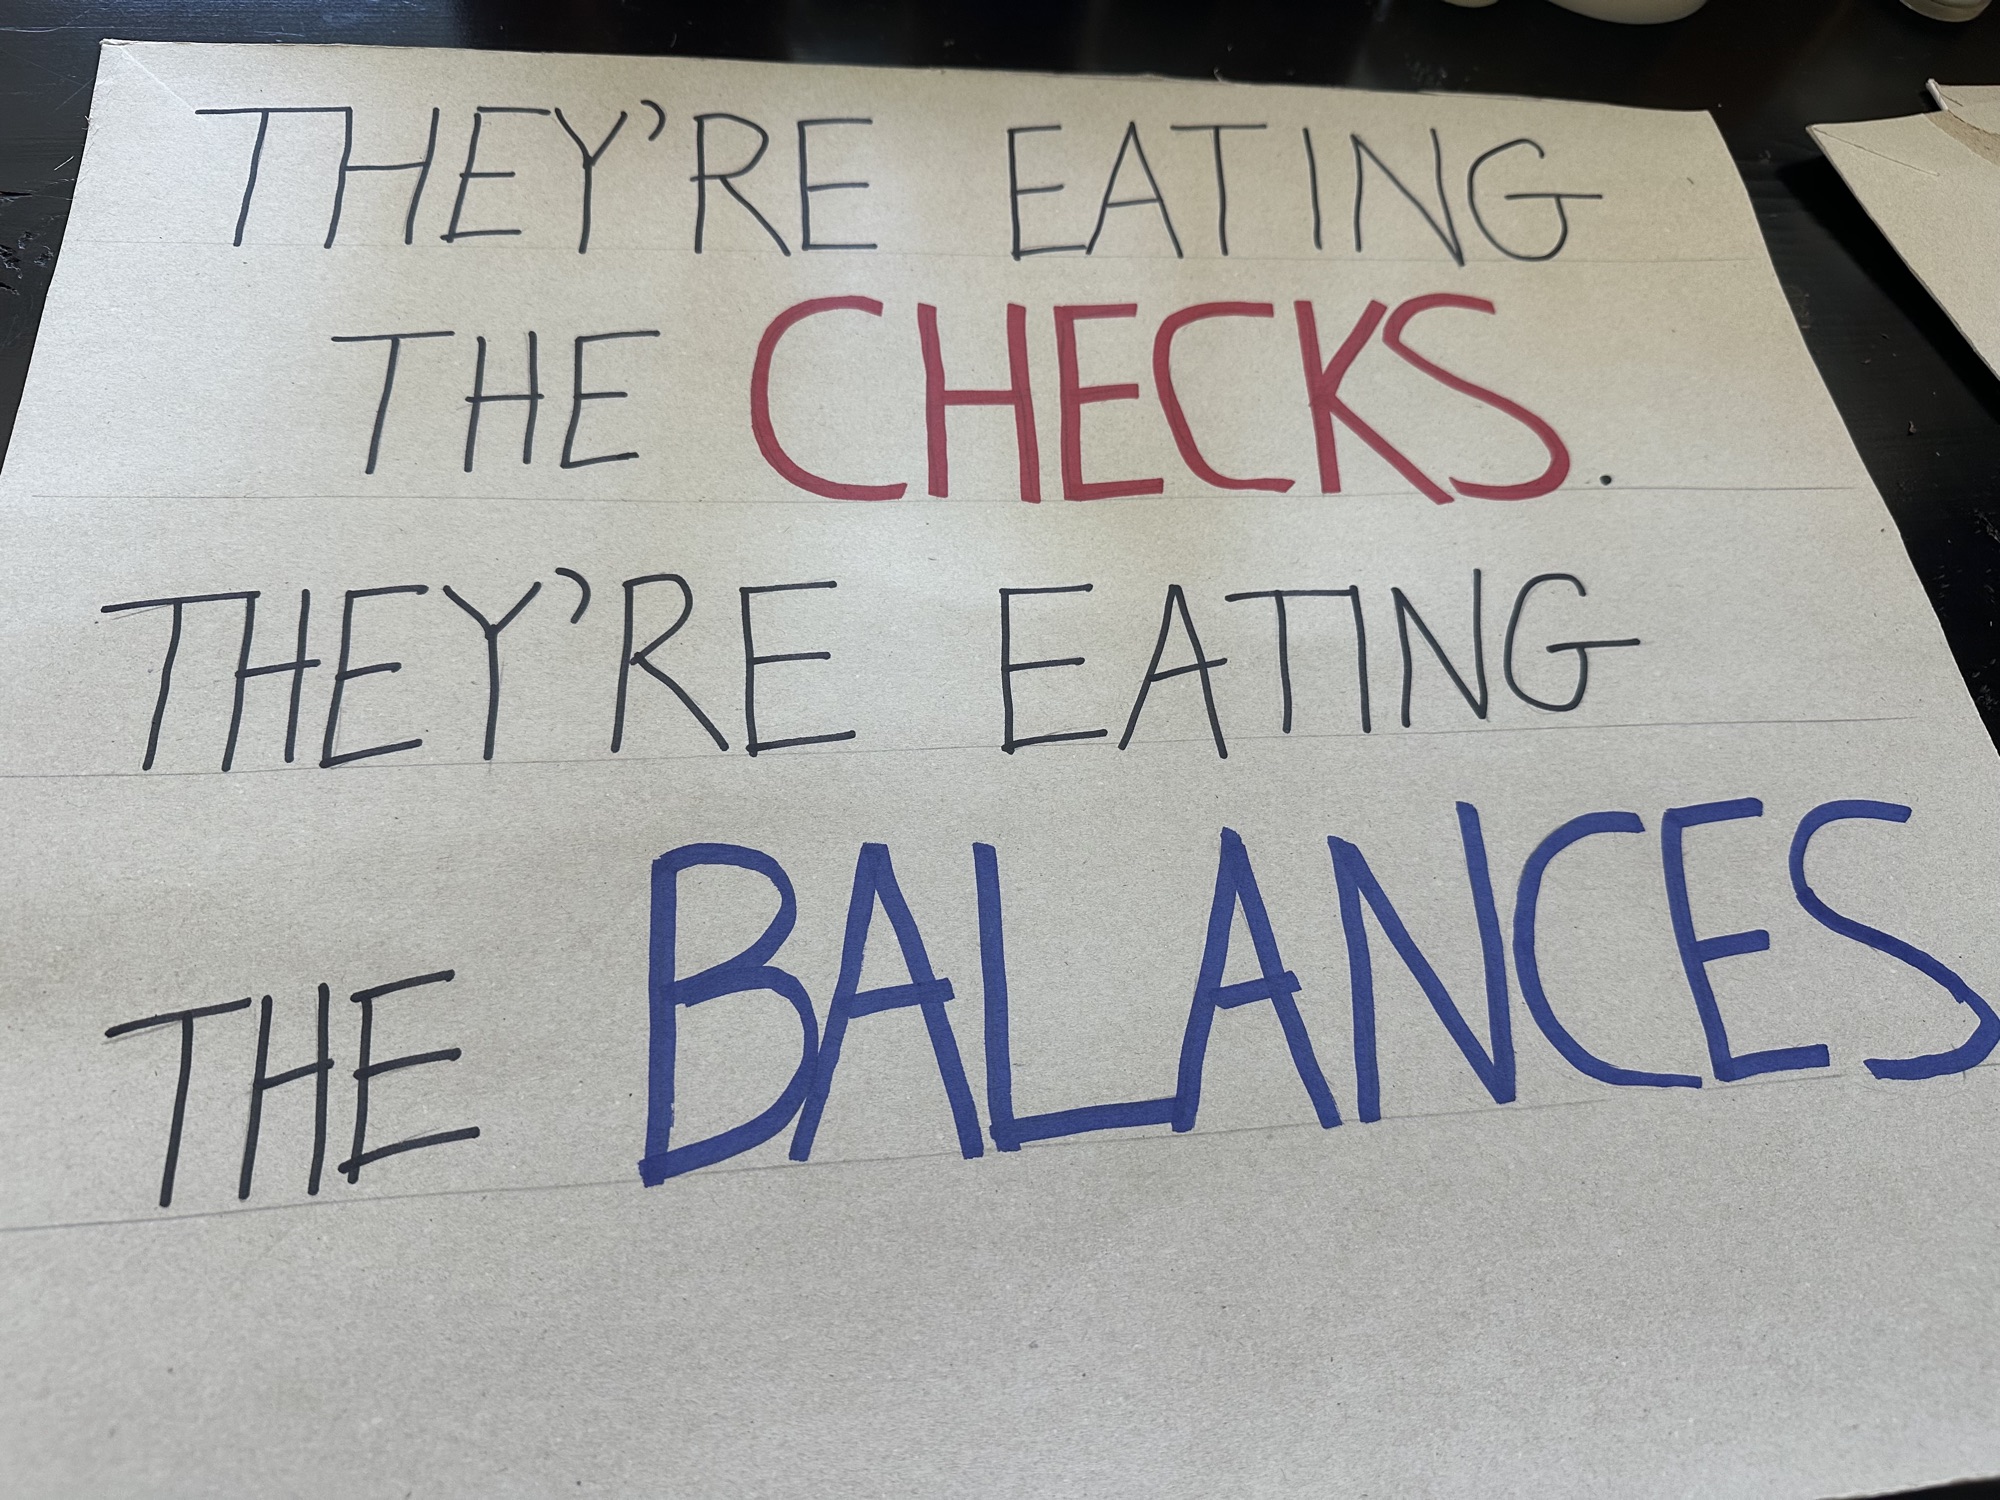 THEY'RE EATING
THE CHECKS.
THEY'RE EATING
THE BALANCES